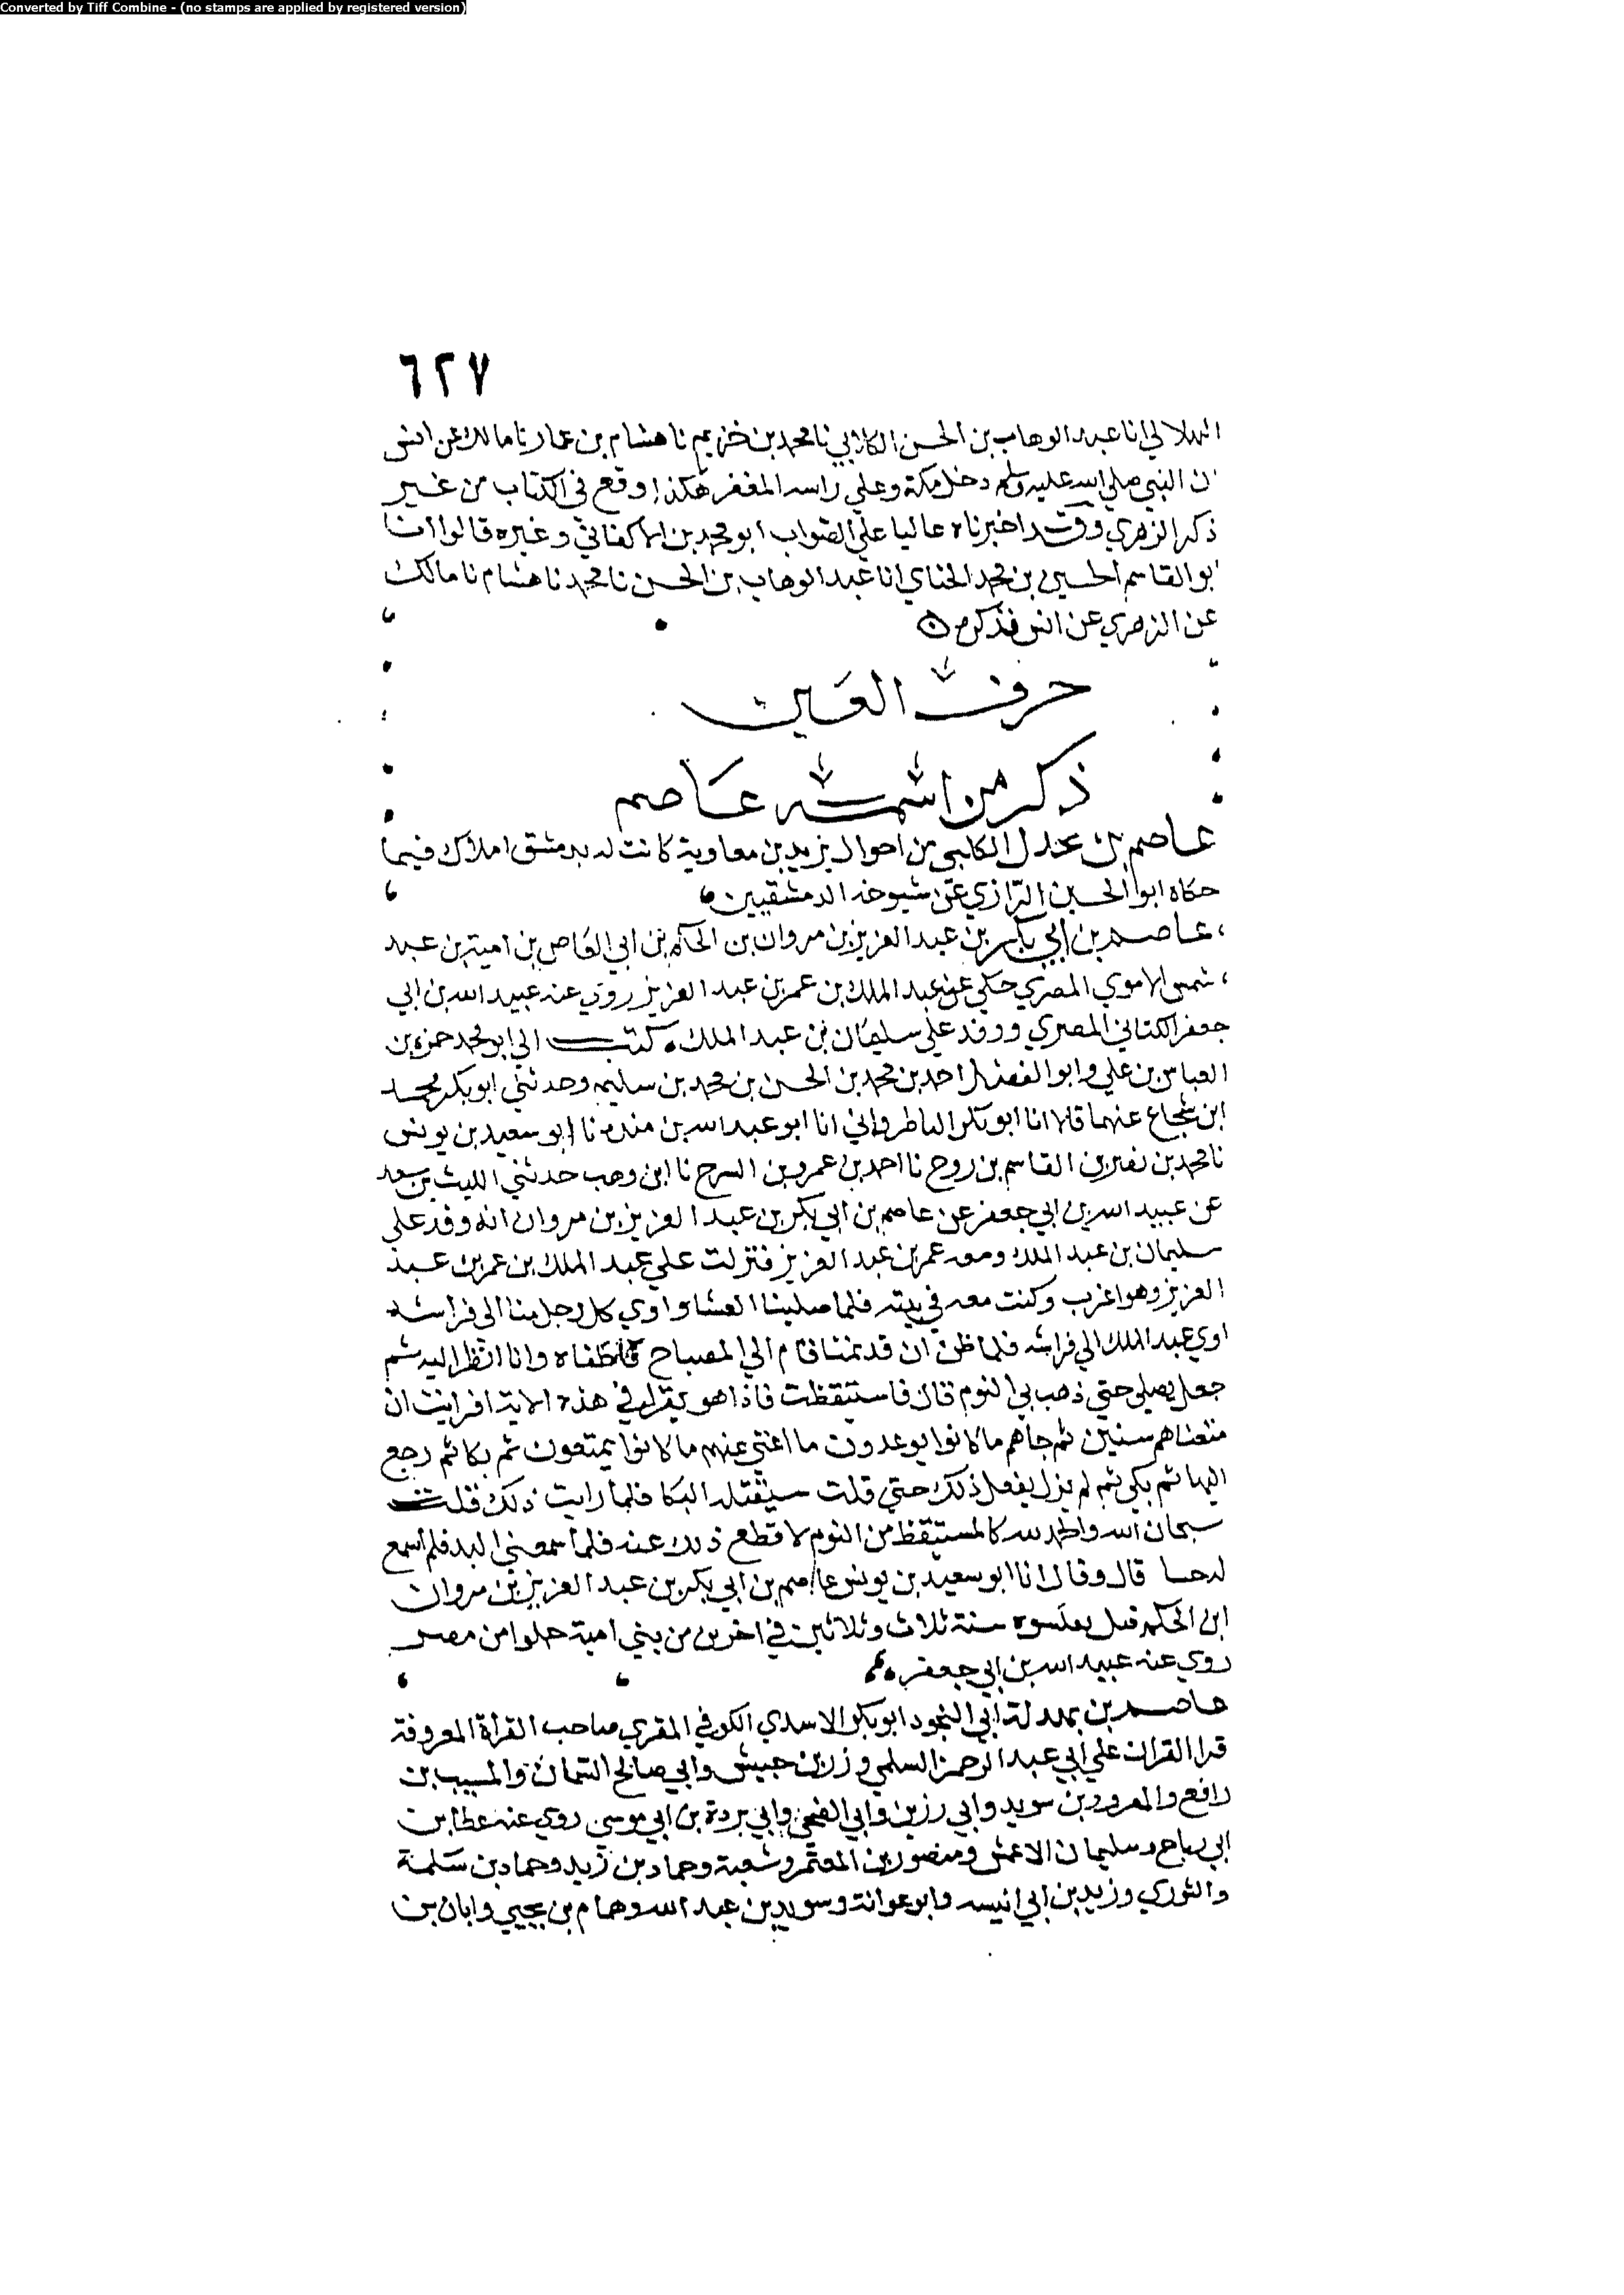 Converted by Tiff Combine - (no stamps are applied by registered version)
٦٢٧
الهلالي انا عبد الوهاب بن الحسن الكلابي نا محمد بن خزيم نا هشام بن عمار نا مالك عن انس
ان النبي صلي الله عليه وسلم دخل مكة وعلي راسه المغفر هكذا وقع في الكتاب من غير
ذكر الزهري وقد اخبرناه عاليا علي الصواب ابو محمد بن الاكفاني وغيره قالوا انا
ابو القاسم الحسين بن محمد الحناي انا عبد الوهاب بن الحسن نا محمد نا هشام نا مالك
عن الزهري عن انس فذكره
حرف العين
ذكر من اسمه عاصم
عاصم بن بحدل الكلبي من اخوال يزيد بن معاوية كانت له بدمشق املاك فيما
حكاه ابو الحسين الرازي عن شيوخه الدمشقيين
عاصم بن ابي بكر بن عبد العزيز بن مروان بن الحكم بن ابي العاص بن امية بن عبد
شمس الاموي المصري حكي عن عبد الملك بن عمر بن عبد العزيز روي عنه عبيد الله بن ابي
جعفر الكناني المصري ووفد علي سليمان بن عبد الملك كتب الي ابو محمد حمزه بن
العباس بن علي وابو الفضل احمد بن محمد بن الحسن بن محمد بن سليم وحدثني ابو بكر محمد
ابن شجاع عنهما قالا انا ابو بكر الباطرقاني انا ابو عبد الله بن منده نا ابو سعيد بن يونس
نا محمد بن نصر بن القاسم بن روح نا احمد بن عمرو بن السرح نا ابن وهب حدثني الليث بن سعد
عن عبيد الله بن ابي جعفر عن عاصم بن ابي بكر بن عبد العزيز بن مروان انه وفد علي
سليمان بن عبد الملك ومعه عمر بن عبد العزيز فنزلت علي عبد الملك بن عمر بن عبد
العزيز وهو اعزب وكنت معه في بيته فلما صلينا العشا واوي كل رجل منا الي فراشه
اوي عبد الملك الي فراشه فلما ظن ان قد نمنا قام الي المصباح فاطفاه وانا انظر اليه ثم
جعل يصلي حتي ذهب بي النوم قال فاستيقظت فاذا هو يقرا في هذه الاية افرايت ان
متعناهم سنين ثم جاهم ما كانوا يوعدون ما اغني عنهم ما كانوا يمتعون ثم بكا ثم رجع
اليها ثم بكي ثم لم يزل يفعل ذلك حتي قلت سيقتله البكا فلما رايت ذلك قلت
سبحان الله والحمد لله كالمستيقظ من النوم لاقطع ذلك عنه فلما سمعني لبد فلم اسمع
له حسا قال وقال انا ابو سعيد بن يونس عاصم بن ابي بكر بن عبد العزيز بن مروان
ابن الحكم قتل سنة ثلاث وثلاثين في اخرين من بني امية حملوا من مصر
روي عنه عبيد الله بن ابي جعفر
عاصم بن بهدلة ابي النجود ابو بكر الاسدي الكوفي المقري صاحب القراة المعروفة
قرا القران علي ابي عبد الرحمن السلمي وزر بن حبيش وابي صالح السمان والمسيب بن
رافع والمعرور بن سويد وابي رزين وابي الضحي وابي بردة بن ابي موسي روي عنه عطا بن
ابي رباح وسليمان الاعمش ومنصور بن المعتمر وشعبة وحماد بن زيد وحماد بن سلمة
والثوري وزيد بن ابي انيسه وابو عوانة وسويد بن عبد الله وهمام بن يحيي وابان بن